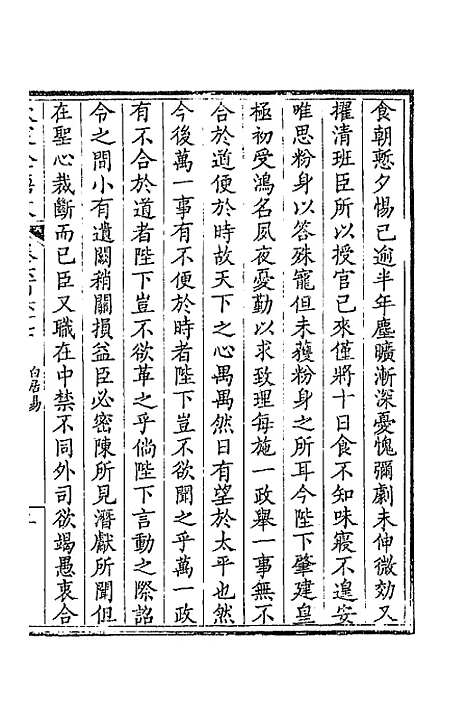 食朝慙夕惕已逾半年塵曠漸深憂愧彌劇未伸微効又
擢清班臣所以授官已來僅將十日食不知味寢不遑安
唯思粉身以答殊寵但未獲粉身之所耳今陛下肇建皇
極初受鴻名夙夜憂勤以求致理每施一政舉一事無不
合於道便於時故天下之心顒顒然日有望於太平也然
今後萬一事有不便於時者陛下豈不欲聞之乎萬一政
有不合於道者陛下豈不欲革之乎倘陛下言動之際詔
令之間小有遺闕稍關損益臣必密陳所見潛獻所聞但
在聖心裁斷而已臣又職在中禁不同外司欲竭愚衷合
白居易